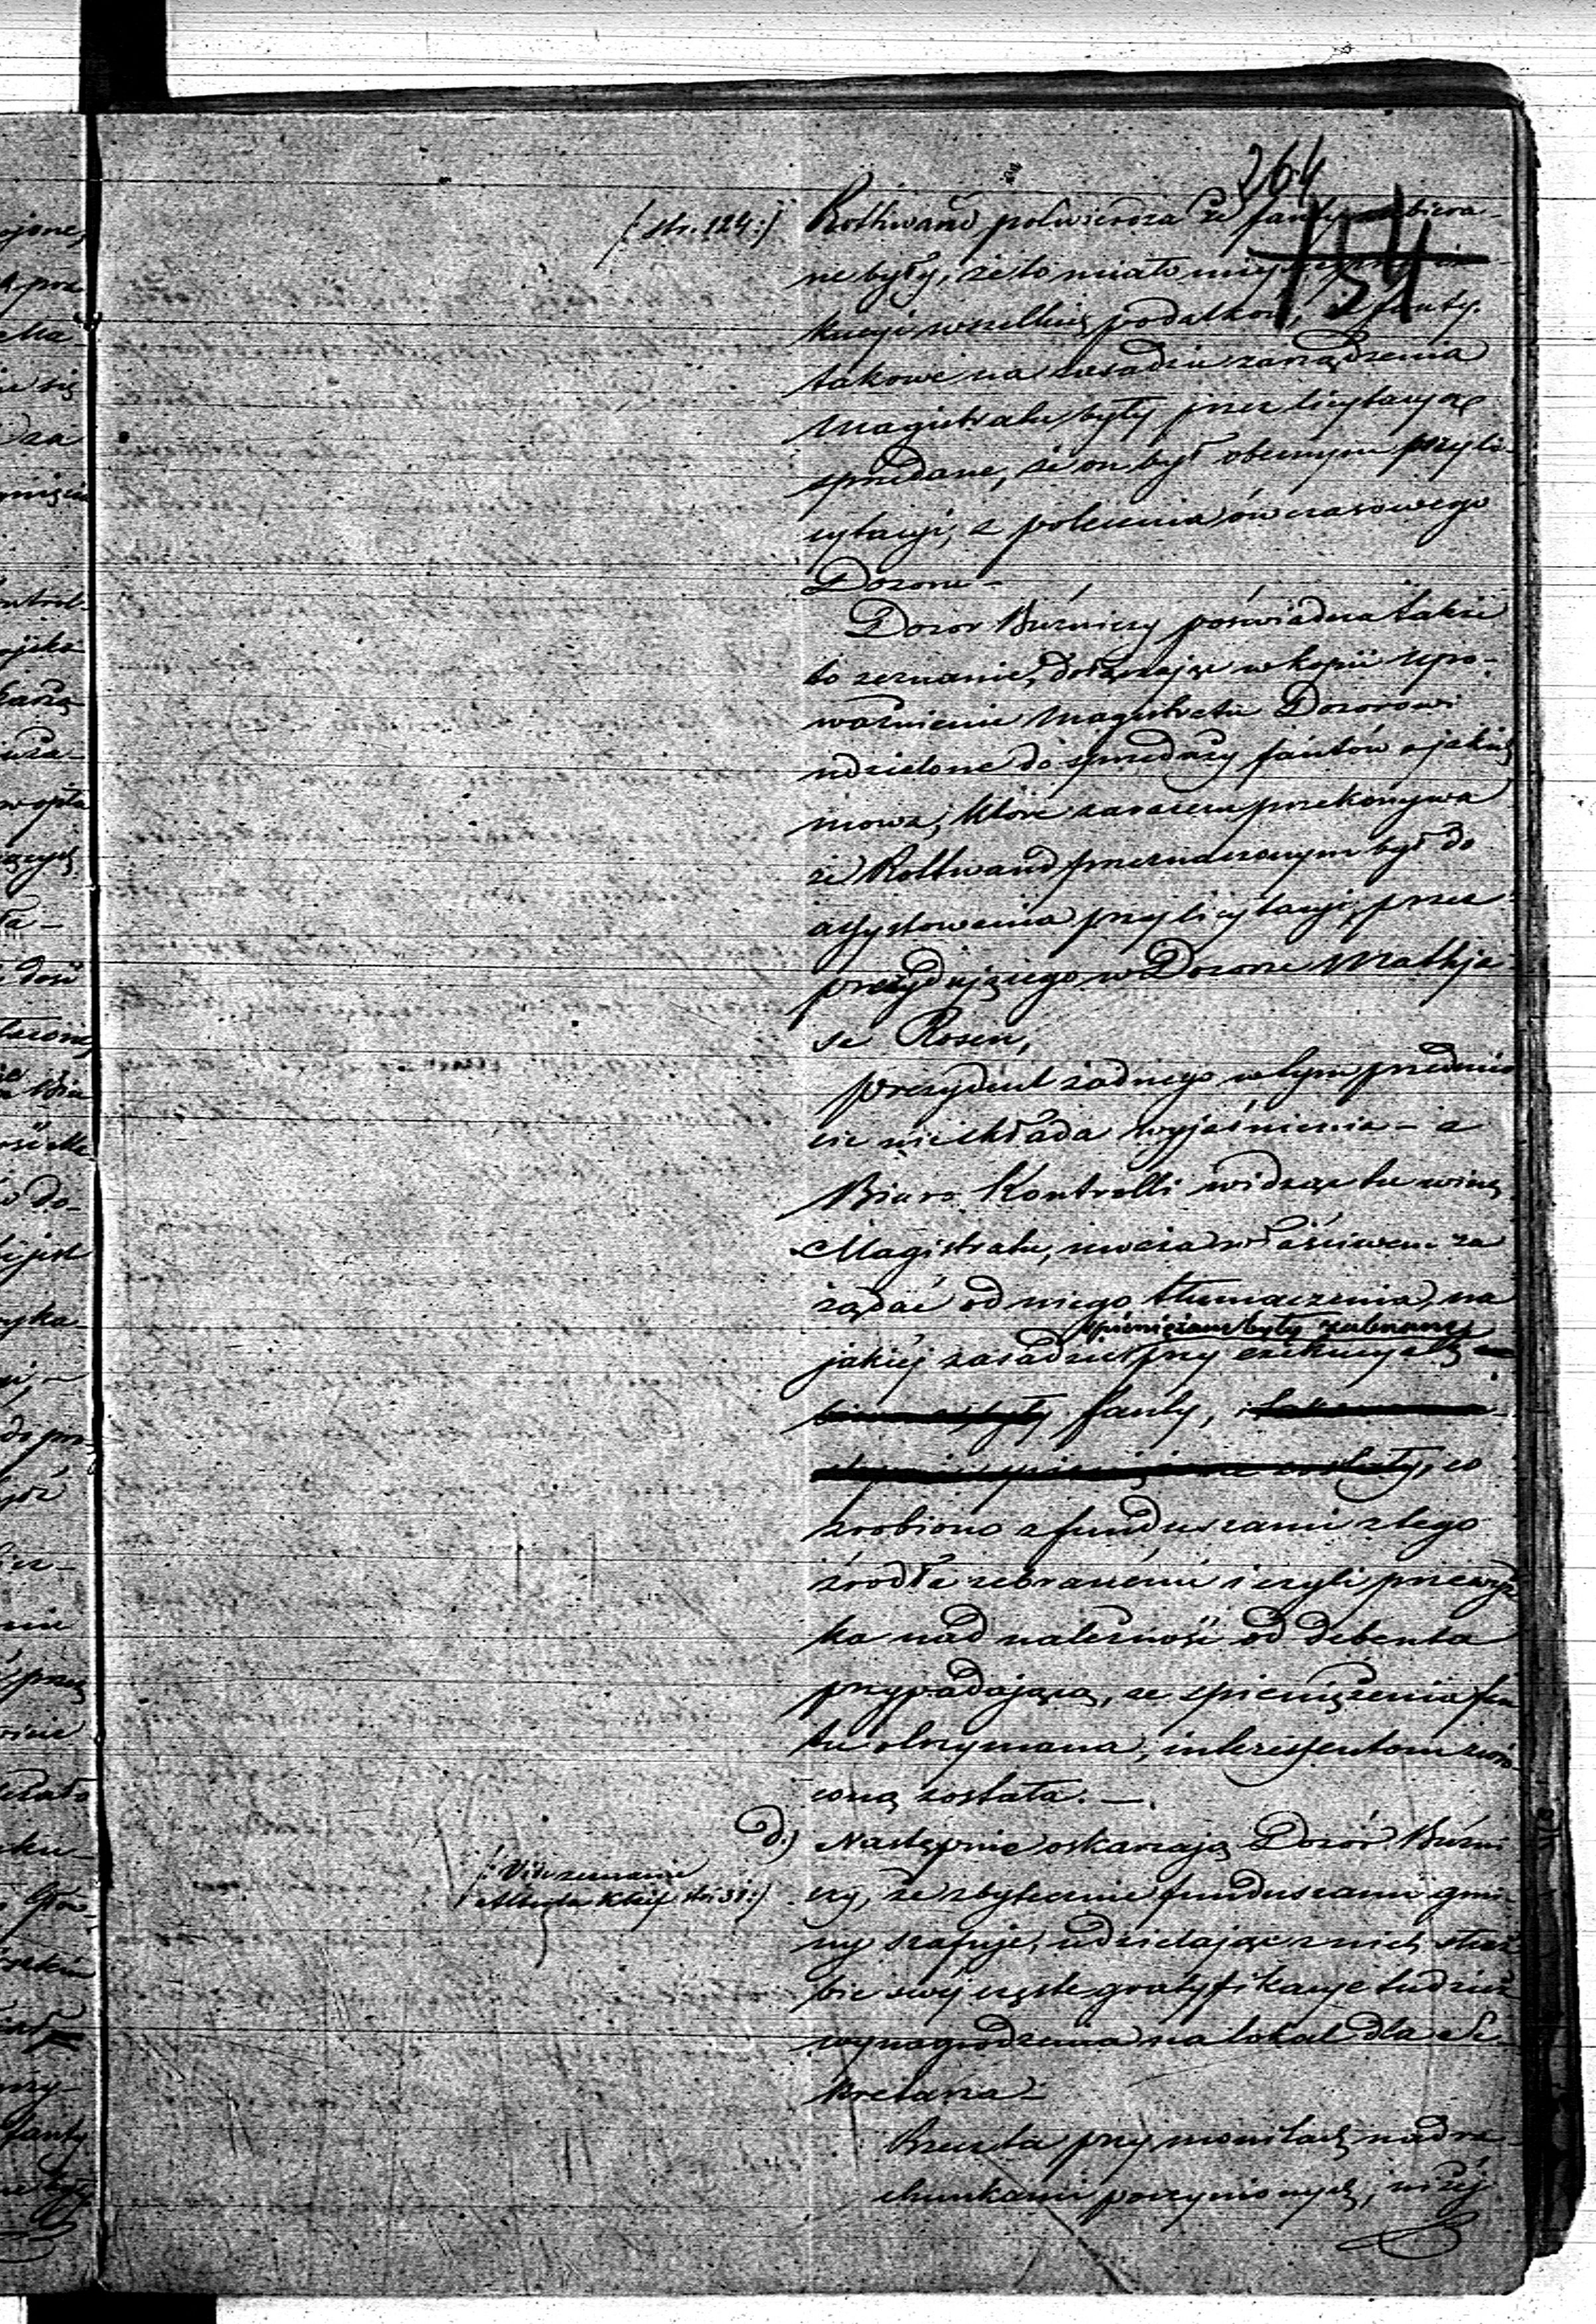 264
154
(: str. 124 :)
Rothwand potwierdza że fanty zabiera-
ne były, że to miało miejsce przy
kucyi wszelkich podatków, fanty
takowe na zasadzie zarządzenia
Magistratu były przez licytacyą
sprzedane, że on był obecnym przy li-
cytacyi, z polecenia ówczasowego
Dozoru –
Dozor Bużniczy poświadcza także
to zeznanie, dołączając w kopii upo-
ważnienie Magistratu Dozorowi
udzielone do sprzedaży fantów o jakich
mowa, które zarazem przekonywa
że Rothwand przeznaczonym był do
assystowania przy licytacyi, przez
prezydującego w Dozorze Mathja-
sa Rosen,
prezydent żadnego w tym przedmio
cie nie składa wyjaśnienia – a
Biuro Kontrolli widząc tu winę
Magistratu, uważa właściwem za
żądać od niego tłumaczenia, na
spieniężane były zabrane
jakiej zasadzie przy exekucyach
fanty,
co
zrobiono z funduszami z tego
źrodła zebranemi i czyli przewyż
ka nad należność od debenta
przypadającą, ze spieniężenia fan
tu otrzymana, interessentom zwró-
coną została. –
d.) Następnie oskarżają Dozór Bużni
(: Vide zeznanie
str 31 :)
czy, że zbytecznie funduszami gmi-
ny szafuje, udzielając z nich służ
bie swej częste gratyfikacye tudzież
wynagrodzenia na lokal dla Se-
kretarza –
Zresztą przy monitach nad ra-
chunkami poczynionych, niżej